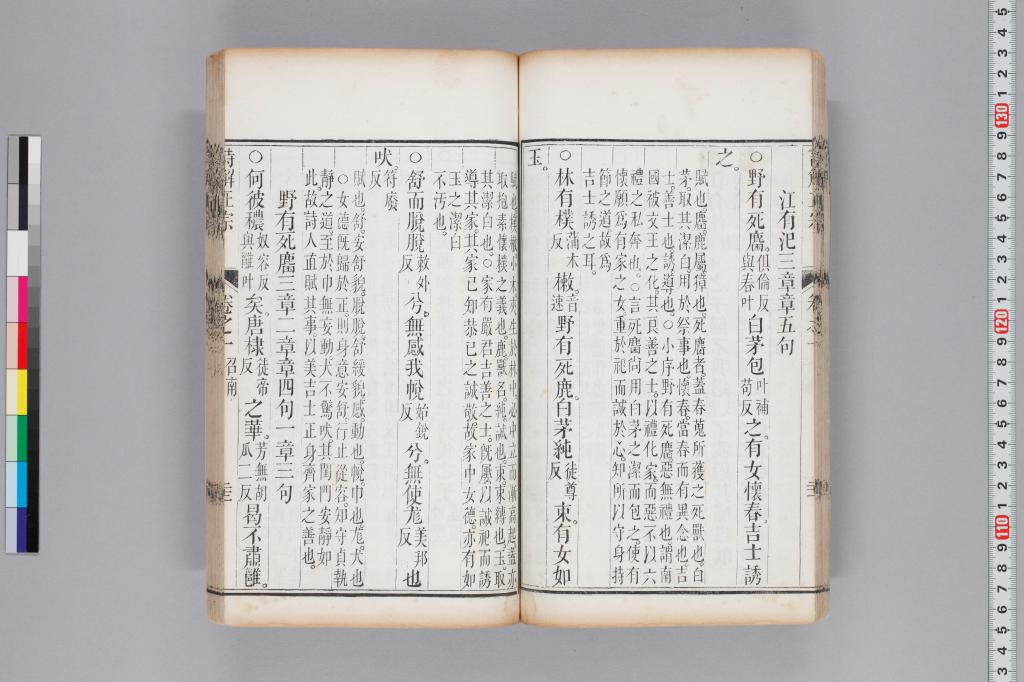 江有汜三章章五句
○野有死麕。俱倫反與春叶白茅包叶補苟反之。有女懷春。吉士誘
之。
賦也。麕。鹿屬。獐也。死麕者。蓋春蒐所獲之死獸也。白
茅。取其潔白。用於祭事也。懷春。當春而有異念也。吉
士。善士也。誘。導也。○小序。野有死麕。惡無禮也。謂南
國被文王之化。其良善之士。以禮化家。而惡不以六
禮之私奔也。○言死麕尚用白茅之潔而包之。使有
懷願爲有家之女。重於祀而誠於心。知所以守身持
節之道。故爲
吉士誘之耳。
○林有樸蒲木反樕。音速野有死鹿。白茅純徒尊反束。有女如
玉。
取其
其潔白也。○家有嚴君吉善之士。旣屢以誠祀而誘
導其家。其家已知恭已之誠敬。故家中女德。亦有如
玉之潔白
不汚也。
○舒而脫脫敕外反兮。無感我帨始銳反兮。無使尨美邦反也
吠。符廢反
賦也。舒。安舒貌。脫脫。舒緩貌。感。動也。帨。巾也。尨。犬也
○女德旣歸於正。則身意安舒。行止從容。知守貞執
靜之道。至於巾無妄動。犬不驚吠。其閨門安靜如
此。故詩人直賦其事。以美吉士正身齊家之善也。
野有死麕三章二章章四句一章三句
○何彼穠奴容反與雝叶矣。唐棣徒帝反之華。芳無胡瓜二反曷不肅雝。
詩解正宗
卷之一
召南